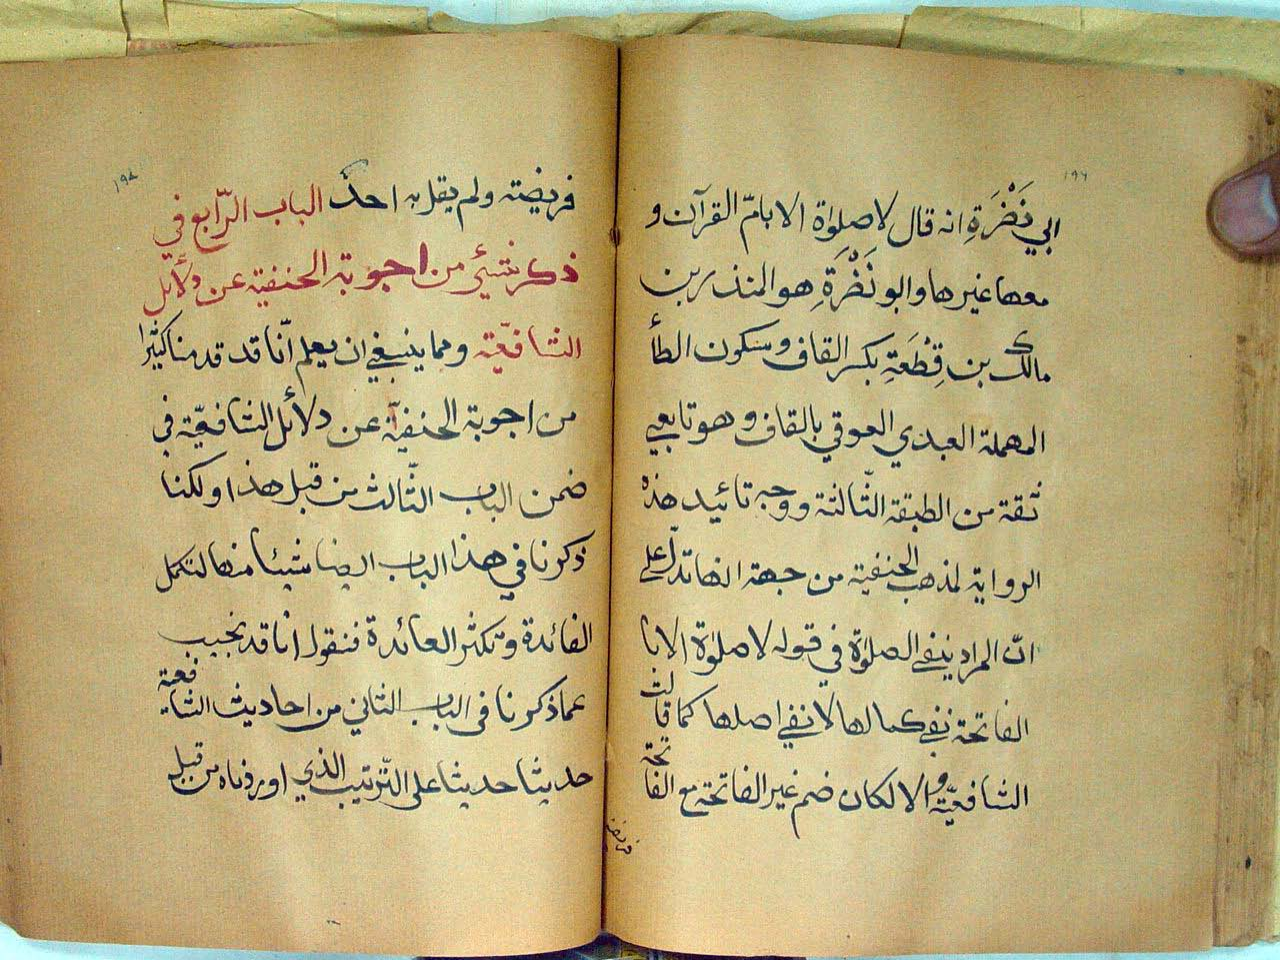 ١٩٦
ابي نَضْرَةِ انه قال لا صلوٰة الا بامّ القرآن و
معها غيرها وابو نَضْرَةِ هو المنذر بن
مالك بن قِطْعَةِ بكسر القاف وسكون الطأ
المهملة العبدي العوقي بالقاف وهو تابعي
ثقة من الطبقة الثّالثة ووجه تائيد هذه
الرواية لمذهب الحنفية من جهة انها تدلّ على
انّ المراد بنفي الصلوٰة في قوله لا صلوٰة الا با
الفاتحة نفي كمالها لا نفي اصلها كما قالت
الشافعيّة والا لكان ضم غير الفاتحة مع الفاتحة
فريضة
١٩٨
فريضته ولم يقل به احدٌ الباب الرّابع في
ذكر شيئي من اجوبة الحنفية عن دلأئل
الشافعيّة ومما ينبغي ان يعلم انّا قد قدمنا كثيرا
من اجوبة الحنفية عن دلأئل الشافعيّة في
ضمن الباب الثّالث من قبل هذا ولكنا
ذكرنا في هذا الباب ايضا شيئا منها لتكمل
الفائدة وتكثر العائدة فنقول انا قد نجيب
عما ذكرنا في الباب الثاني من احاديث الشافعية
حديثا حديثا على التّرتيب الذي اوردناه من قبل